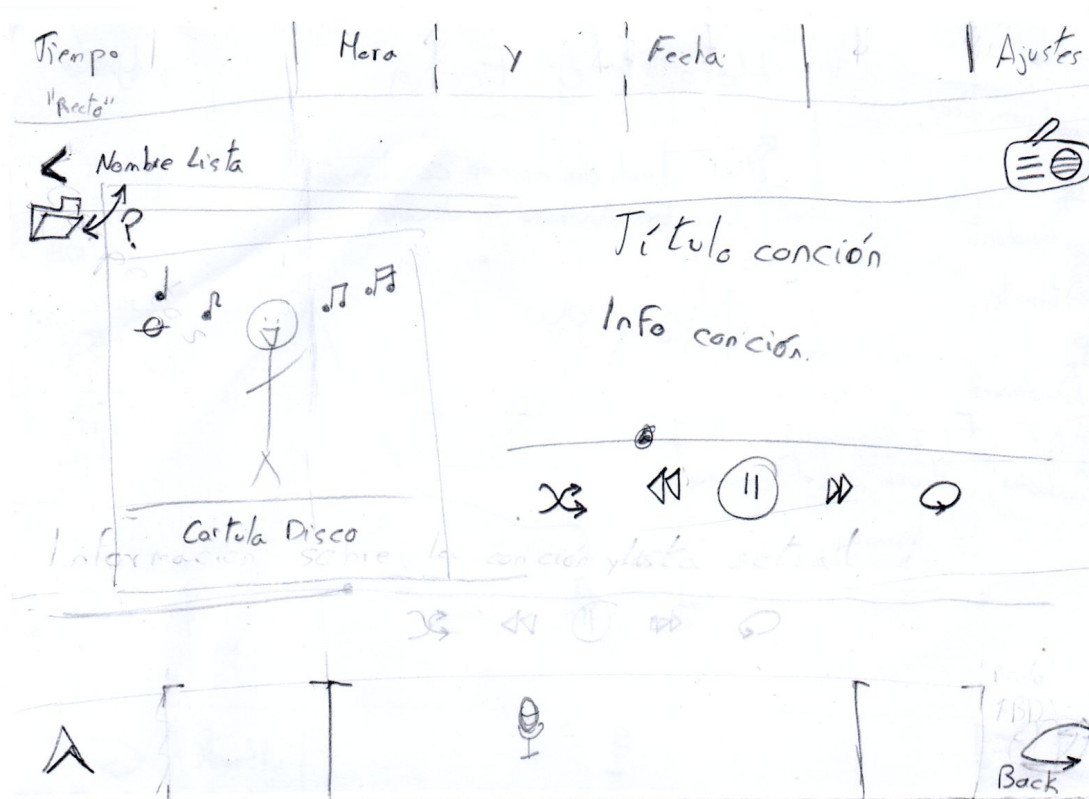 Tiempo Hora y Fecha Ajustes
"Recto"
< Nombre Lista
?
Título canción
Info canción.
Cartula Disco
Información sobre la canción y lista actual
Back